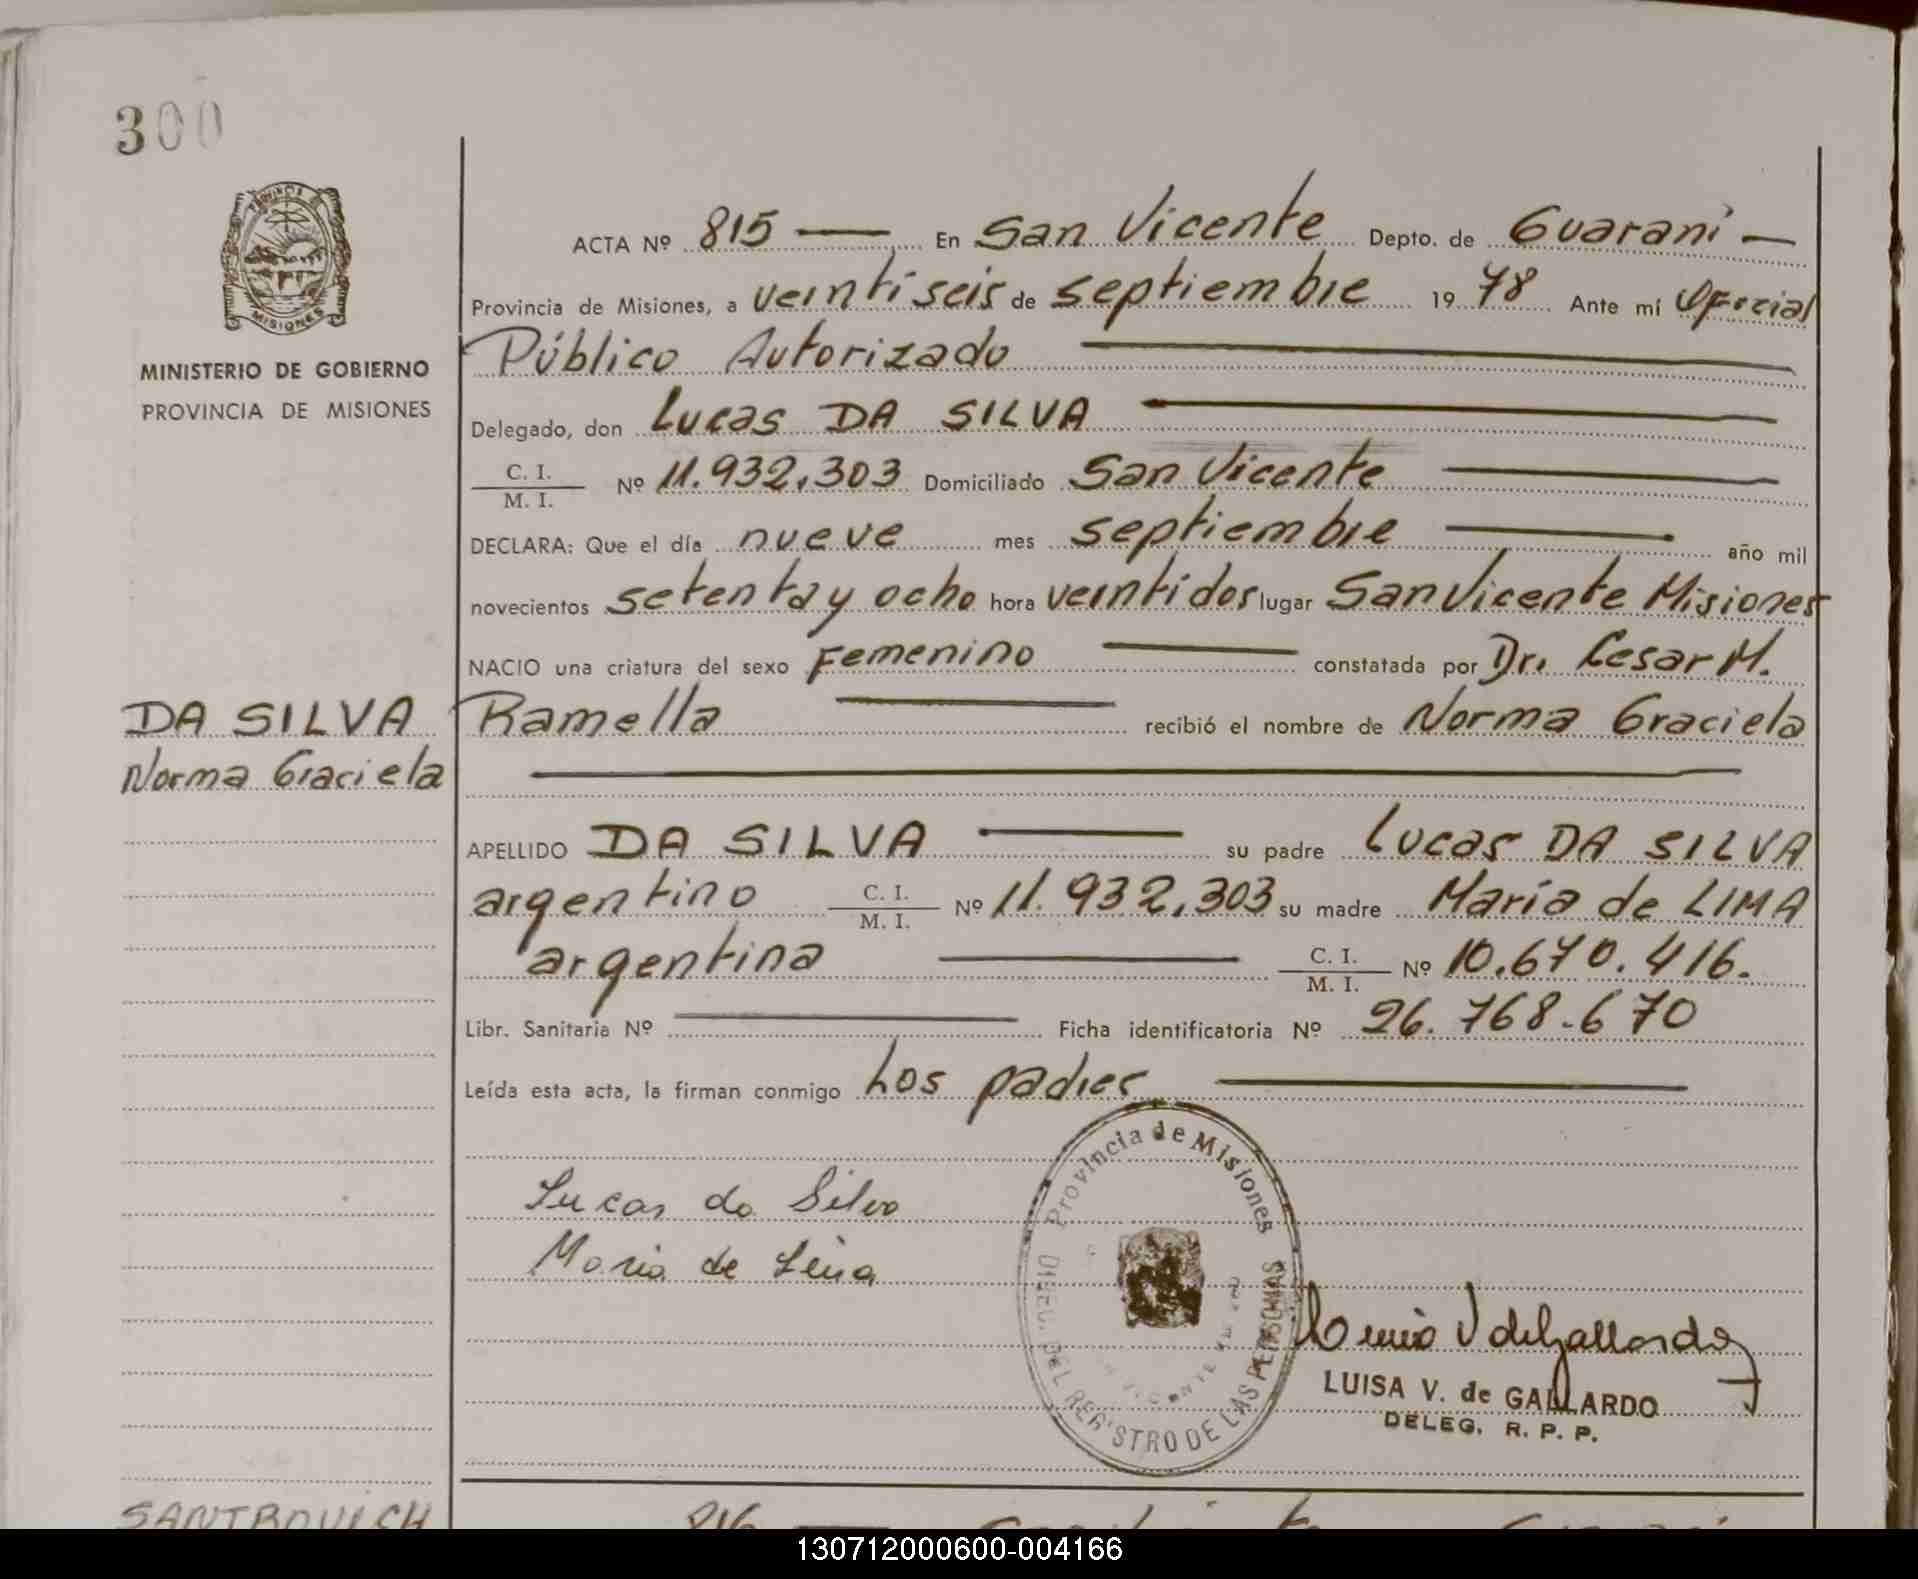 300
PROVINCIA DE
MISIONES
MINISTERIO DE GOBIERNO
PROVINCIA DE MISIONES
ACTA Nº 815 — En San Vicente Depto. de Guaraní —
Provincia de Misiones, a veintiseis de septiembre 19 78 Ante mí Oficial
Público Autorizado
Delegado, don Lucas DA SILVA
C. I.
M. I.
Nº 11.932.303 Domiciliado San Vicente
DECLARA: Que el día nueve mes septiembre año mil
novecientos setenta y ocho hora veintidos lugar San Vicente Misiones
NACIO una criatura del sexo Femenino constatada por Dr. Cesar M.
DA SILVA
Norma Graciela
Ramella recibió el nombre de Norma Graciela
APELLIDO DA SILVA su padre Lucas DA SILVA
argentino C. I.
M. I.
Nº 11.932.303 su madre María de LIMA
argentina C. I.
M. I.
Nº 10.670.416.
Libr. Sanitaria Nº Ficha identificatoria Nº 26.768.670
Leída esta acta, la firman conmigo Los padres
Provincia de Misiones
DIREC. DEL REGISTRO DE LAS PERSONAS
Lucas da Silva
Maria de Lima
Luisa V de Gallardo
LUISA V. de GALLARDO
DELEG. R. P. P.
816 —
130712000600-004166